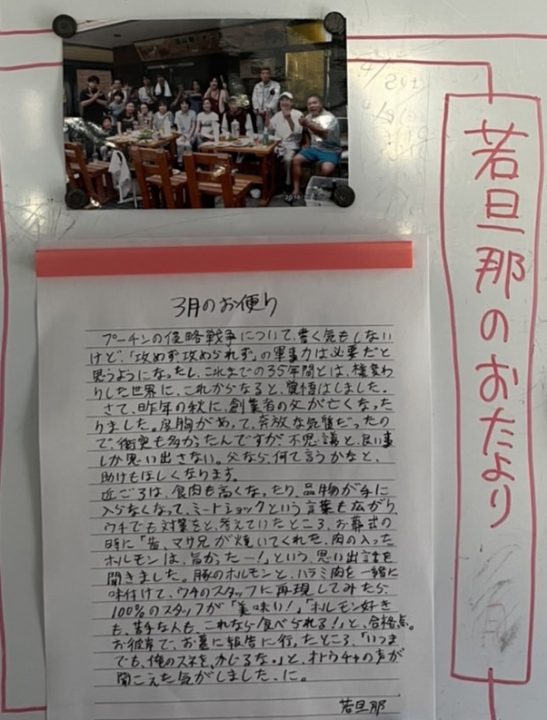 若旦那のおたより
3月のお便り
プーチンの侵略戦争について、書く気もしない
けど、「攻めず攻められず」の軍事力は必要だと
思うようになったし、これまでの35年間とは、様変わ
りした世界に、これからなると、覚悟はしました。
さて、昨年の秋に、創業者の父が亡くなった
りました。度胸があって、奔放な気質だったの
で衝突も多かったんですが不思議と、良い事
しか思い出さない。父なら、何て言うかなと、
助けもほしくなります。
近ごろは、食肉も高くなったり、品物が手に
入らなくなって、ミートショックという言葉も広がり、
ウチでも対策をと、考えていたところ、お葬式の
時に「昔、マサ兄が焼いてくれた、肉の入った
ホルモンは、旨かったー!」という、思い出話を
聞きました。豚のホルモンと、ハラミ肉を一緒に
味付けて、ウチのスタッフに再現してみたら、
100%のスタッフが「美味い!」「ホルモン好き
も、苦手な人も、これなら食べられる!」と、合格点。
お彼岸で、お墓に報告に行ったところ、「いつま
でも、俺のスネを、かじるな。」と、オトウチャの声が
聞こえた気がしました、に。
若旦那